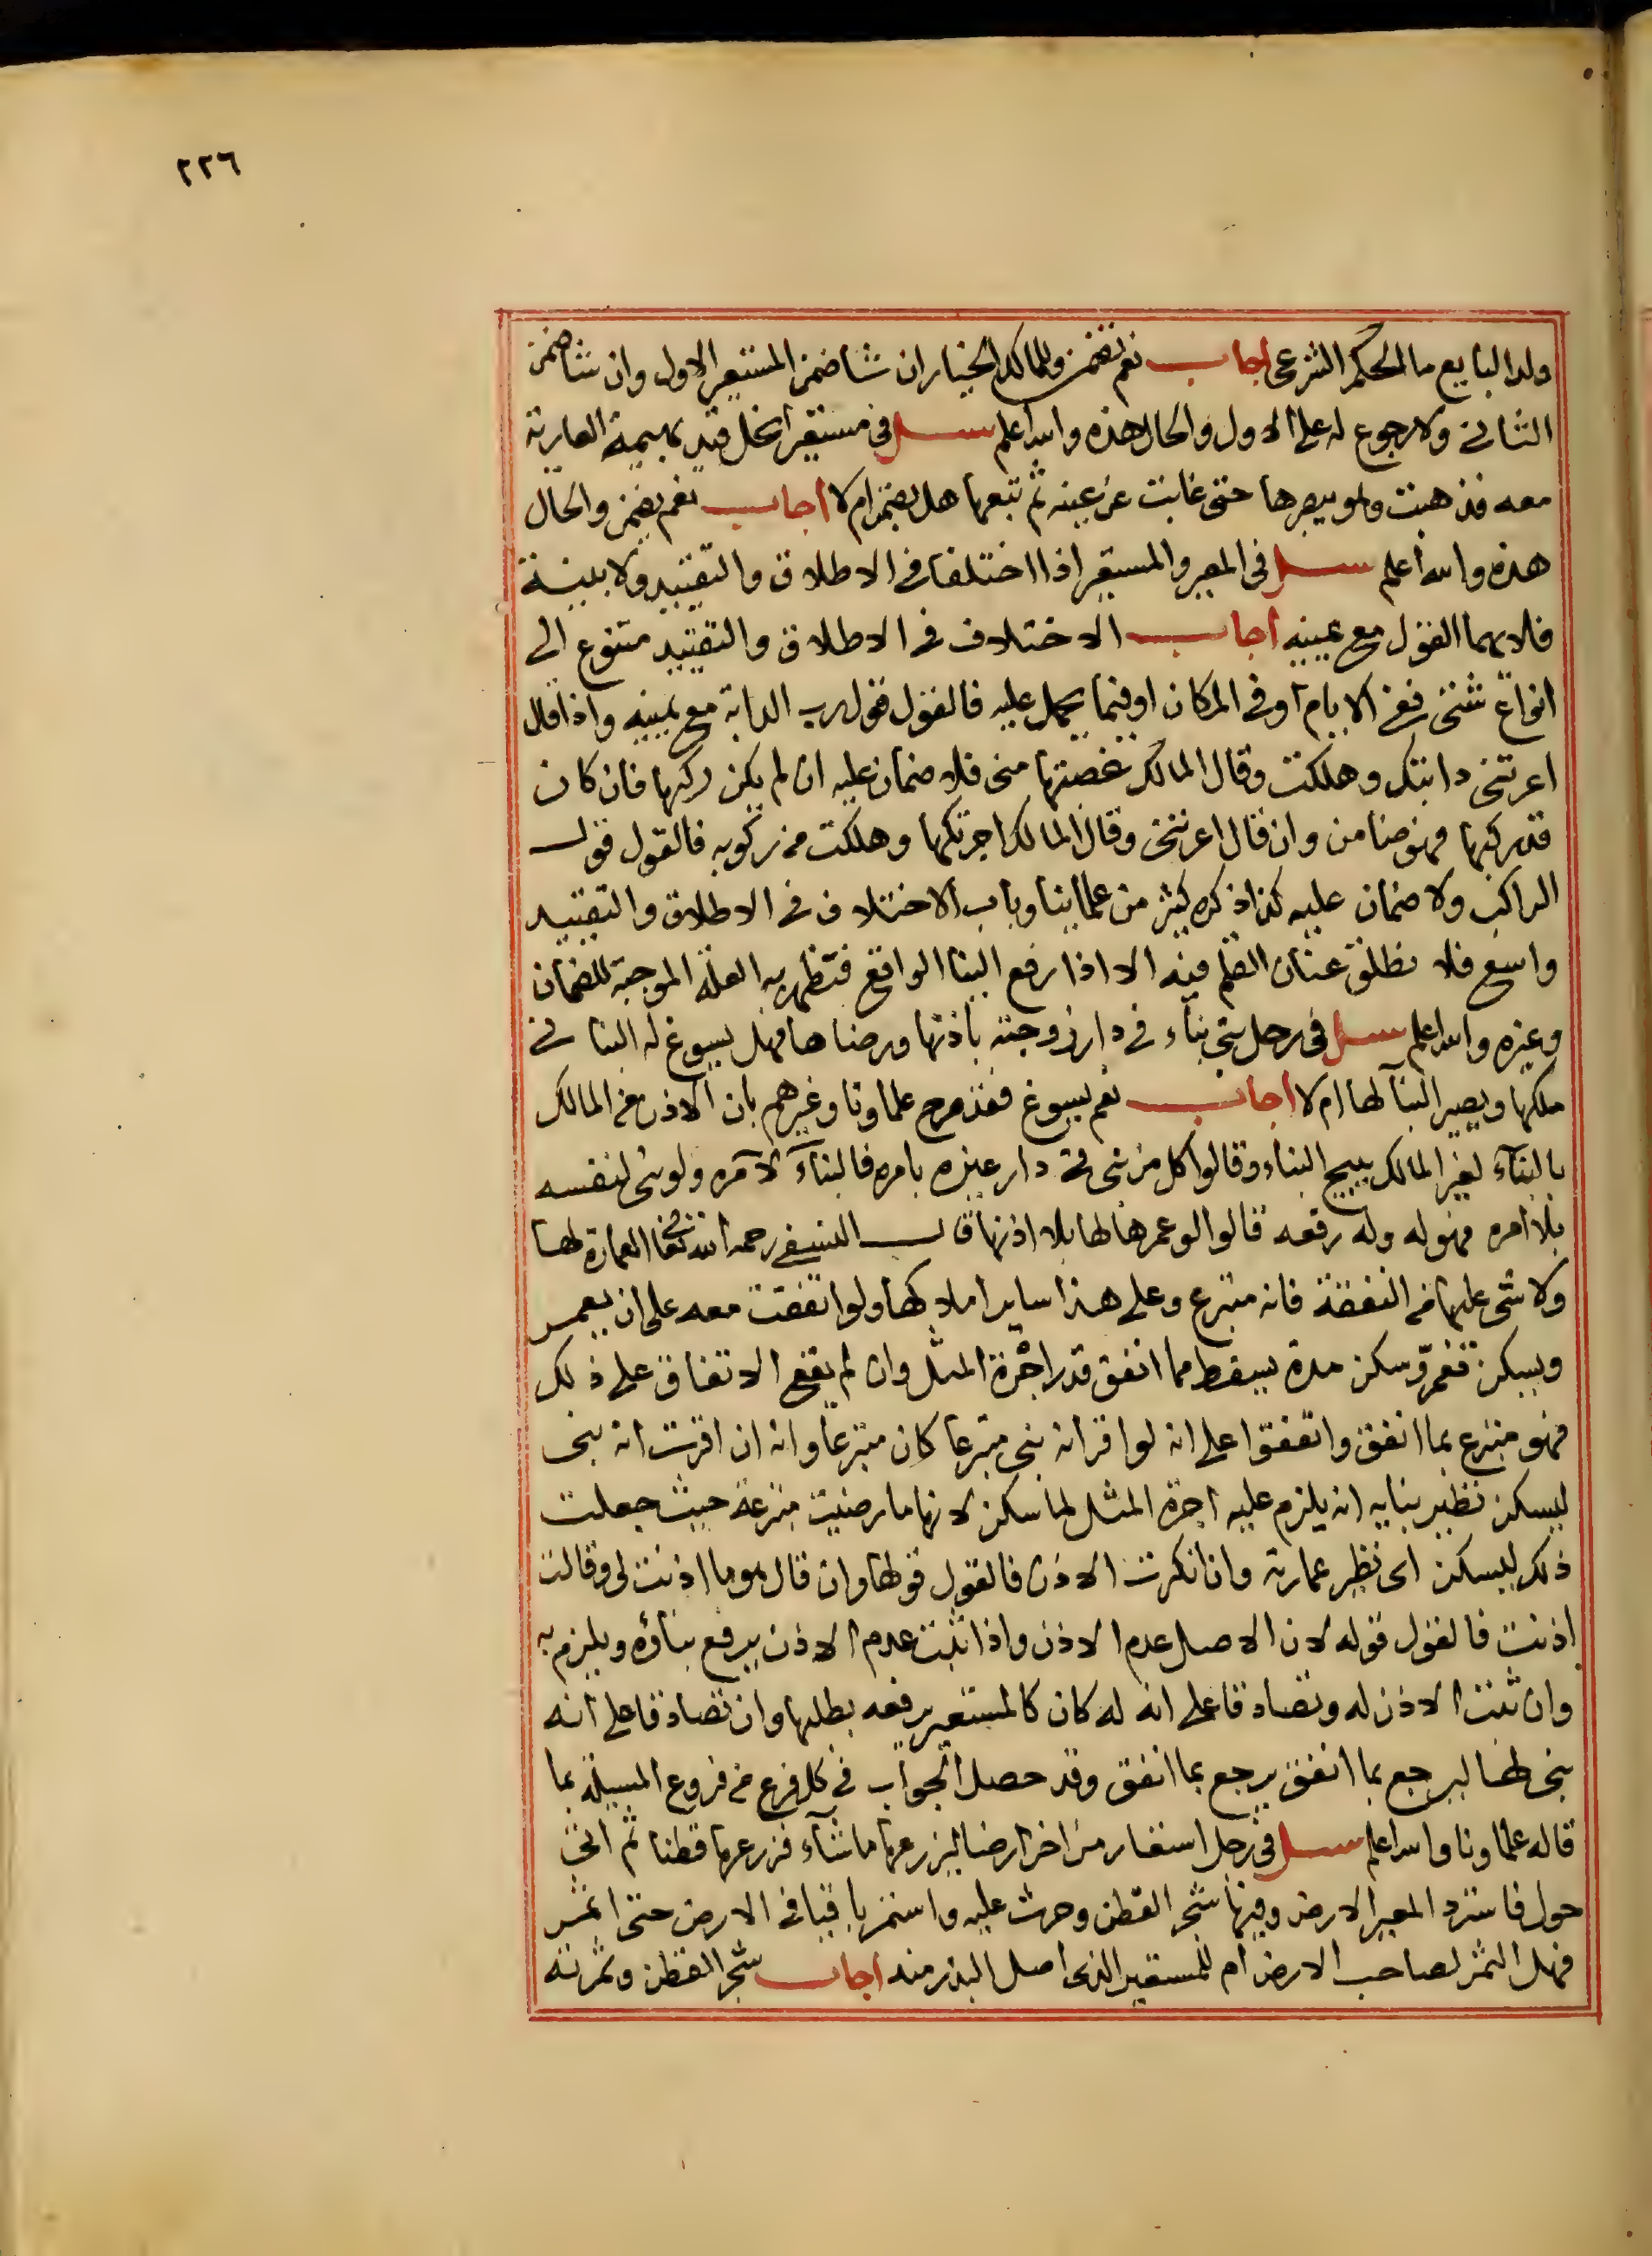 ٢٢٦
ولد البايع ما الحكم الشرعى اجاب نعم تضمن وللمالك الخيار ان شا ضمن المستعير الاول وان شا ضمن
الثانى ولا رجوع له على الاول والحال هذه والله اعلم سئل فى مستعير انحل قيد بهيمة العارية
معه فذهبت وهو يبصرها حتى غابت عن عينه ثم تبعها هل يضمن ام لا اجاب نعم يضمن والحال
هذه والله أعلم سئل فى المعير والمستعير اذا اختلفا فى الاطلاق والتقييد ولا بينة
فلايهما القول مع يمينه اجاب الاختلاف فى الاطلاق والتقييد متنوع الى
انواع شتى ففى الايام أو فى المكان او فيما يحمل عليه فالقول قول رب الدابة مع يمينه واذا قال
اعرتنى دابتك وهلكت وقال المالك غصبتها منى فلا ضمان عليه ان لم يكن ركبها فان كان
قد ركبها فهو ضامن وان قال اعرتنى وقال المالك اجرتكها وهلكت من ركوبه فالقول قول
الراكب ولا ضمان عليه كذا ذكره كثير من علماينا وباب الاختلاف فى الاطلاق والتقييد
واسع فلا نطلق عنان القلم فيه الا اذا رفع الينا الواقع فتظهر به العلة الموجبة للضمان
وغيره والله اعلم سئل فى رجل بنى بناء فى دار زوجته باذنها ورضاها فهل يسوغ له البنا فى
ملكها ويصير البنآ لها ام لا اجاب نعم يسوغ فقد صرح علماونا وغيرهم بان الاذن من المالك
بالبنآء لغير المالك يبيح البناء وقالوا كل من بنى فى دار غيره بامره فالبنآء لآمره ولو بنى لنفسه
بلا امره فهو له وله رفعه قالوا لو عمرها لها بلا اذنها قال النسفى رحمه الله تعالى العمارة لها
ولا شى عليها من النفقة فانه متبرع وعلى هذا ساير املاكها ولو اتفقت معه على ان يعمر
ويسكن فعمر وسكن مدة يسقط مما انفق قدر اجرة المثل وان لم يقع الاتفاق على ذلك
فهو متبرع بما انفق واتفقوا على انه لو اقر انه بنى متبرعا كان متبرعا وانه ان اقرت انه بنى
ليسكن نظير بنايه انه يلزم عليه اجرة المثل لما سكن لانها ما رضيت متبرعة حيث جعلت
ذلك ليسكن اى نظير عمارته وان انكرت الاذن فالقول قولها وان قال هو ما اذنت لى وقالت
اذنت فالقول قوله لان الاصل عدم الاذن واذا ثبت عدم الاذن يرفع بناؤه ويلزم به
وان ثبت الاذن له وتصادقا على انه له كان كالمستعير يرفعه بطلبها وان تصادقا على أنه
بنى لها ليرجع بما انفق يرجع بما انفق وقد حصل الجواب فى كل فرع من فروع المسيلة بما
قاله علماونا والله اعلم سئل فى رجل استعار من اخر ارضا ليزرعها ما شآء فزرعها قطنا ثم اتى
حول فاسترد المعير الارض وفيها شجر القطن وحرث عليه واستمر باقيا فى الارض حتى اثمر
فهل الثمر لصاحب الارض ام للمستعير الذى اصل البذر منه اجاب شجر القطن وثمرته